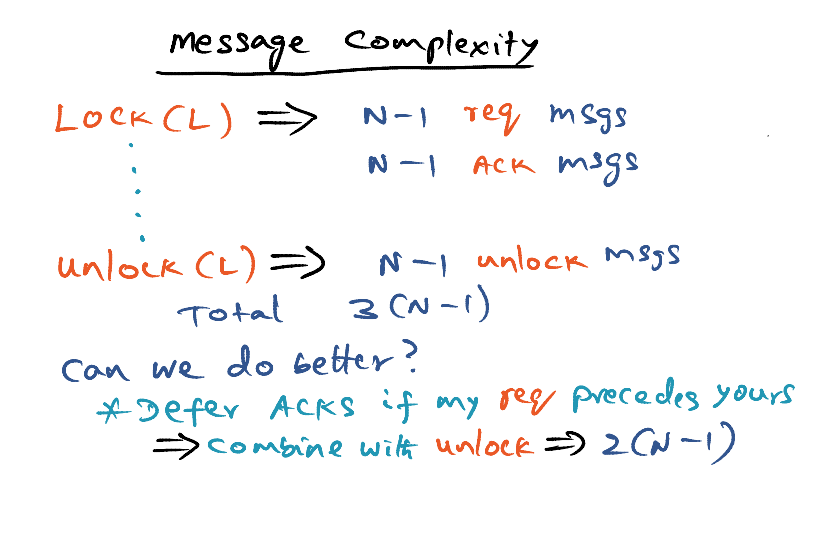 Message Complexity
Lock(L) ⇒ N-1 req msgs
N-1 ACK msgs
unlock(L) ⇒ N-1 unlock msgs
Total 3(N-1)
Can we do better?
* Defer ACKS if my req precedes yours
⇒ combine with unlock ⇒ 2(N-1)